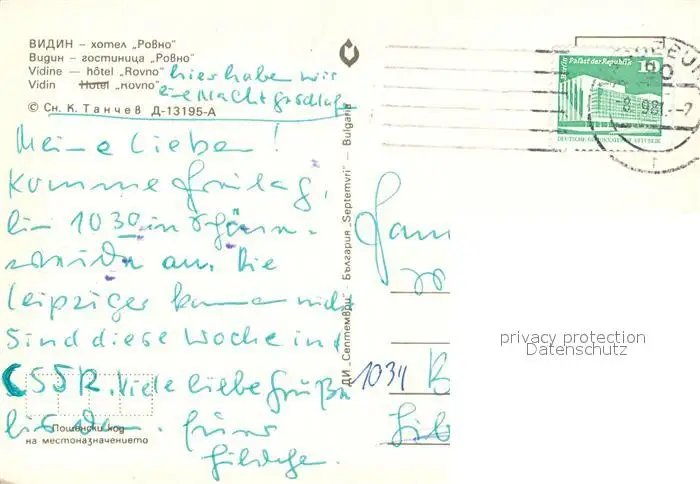 ВИДИН – хотел „Ровно"
Видин – гостиница „Ровно"
Vidine – hôtel „Rovno"
Vidin Hotel „Rovno"
hier haben wir
eine Nacht geschlafen
© Сн. К. Танчев Д-13195-А
Meine Lieben!
Komme Freitag,
10 30 in
an. Die
Leipziger kommen nicht
Sind diese Woche in d
ČSSR. Viele liebe Grüße
Пощенски код
на местоназначението
ДИ „Септември" – България „Septemvri" – Bulgaria
Berlin Palast der Republik
10
DEUTSCHE DEMOKRATISCHE REPUBLIK
Fam
1034 B
privacy protection
Datenschutz